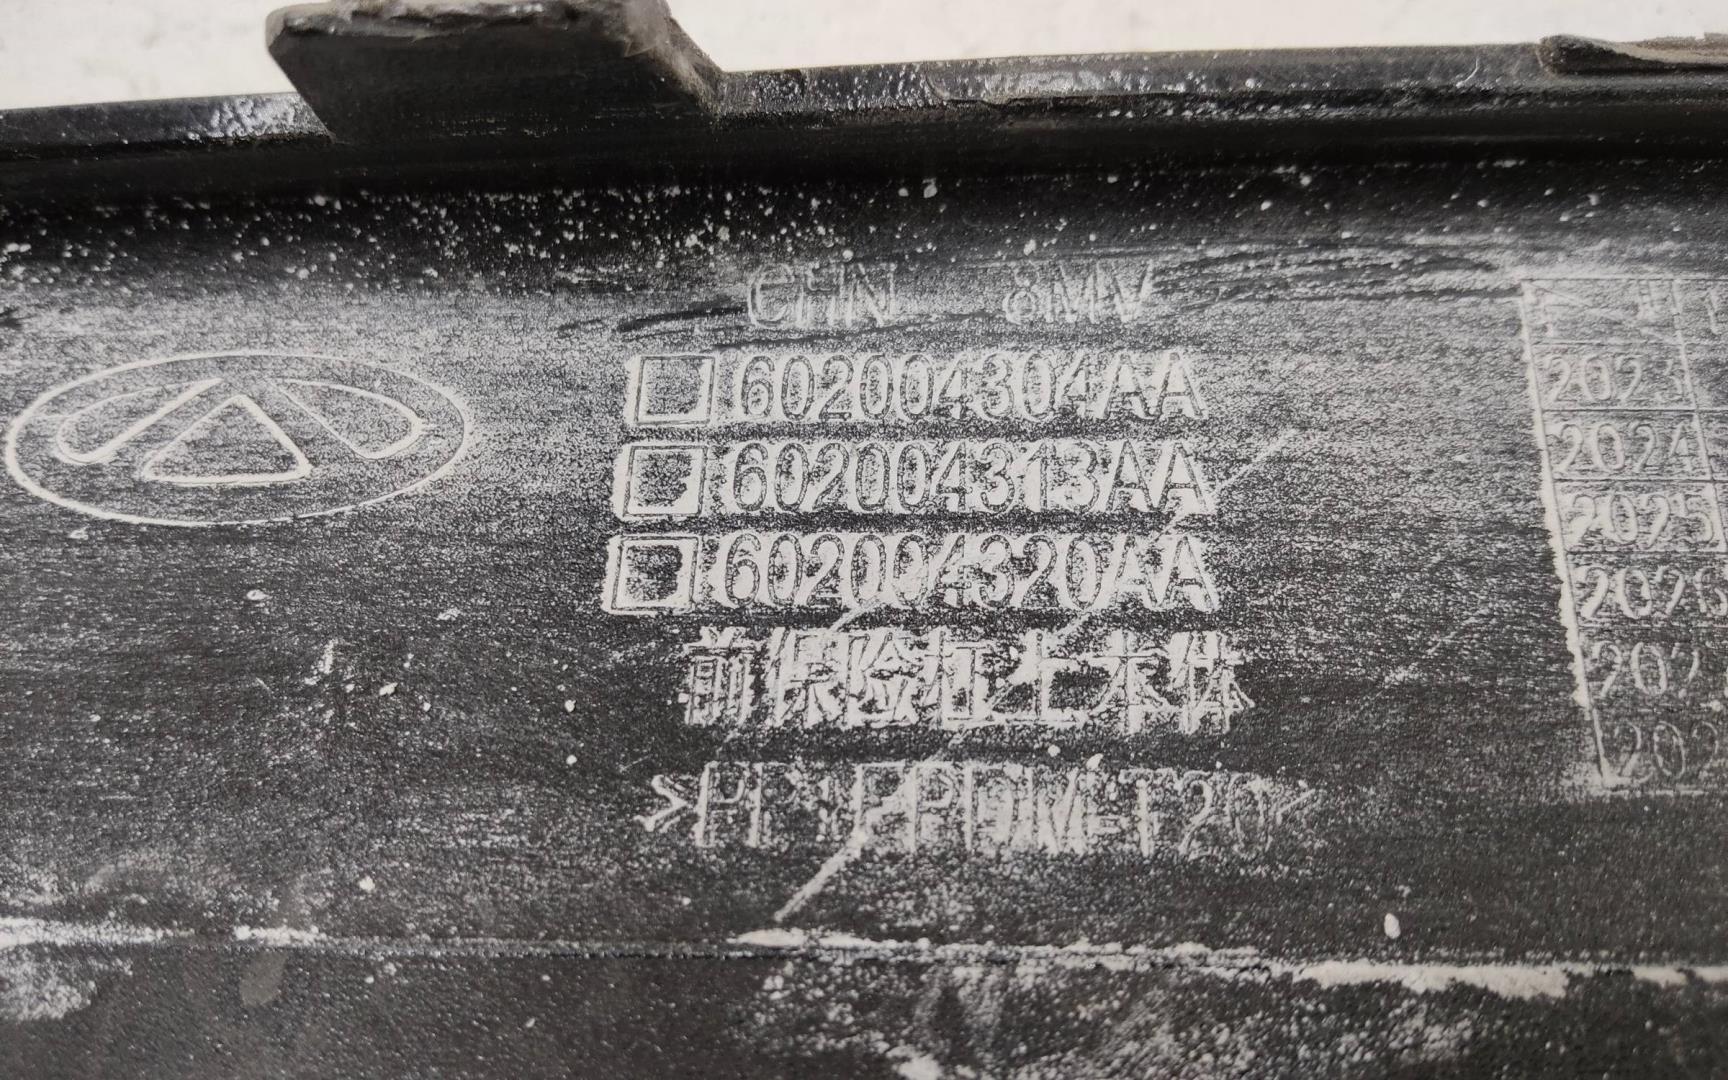 CHN 8MV
602004304AA
602004313AA
602004320AA
前保险杠上本体
>PP+EPDM-T20<
2023
2024
2025
2026